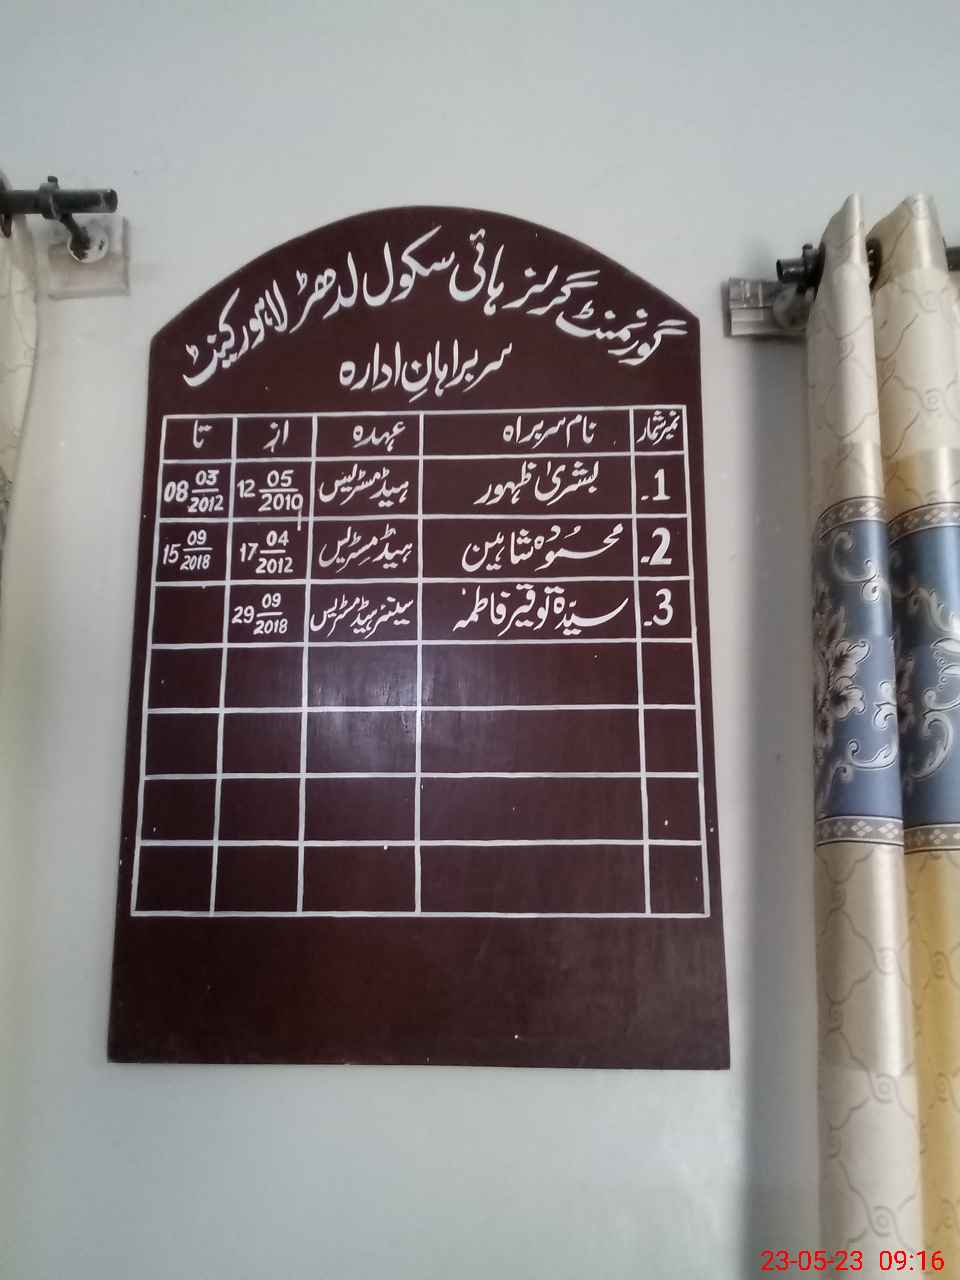 گورنمنٹ گرلز ہائی سکول لدھڑ لاہور کینٹ
سربراہانِ ادارہ
نمبر شمار نام سربراہ عہدہ از تا
1۔ بشریٰ ظہور ہیڈ مسٹریس 12 05/2010 08 03/2012
2۔ محمودہ شاہین ہیڈ مسٹریس 17 04/2012 15 09/2018
3۔ سیّدۃ توقیر فاطمہ سینئر ہیڈ مسٹریس 29 09/2018
23-05-23 09:16